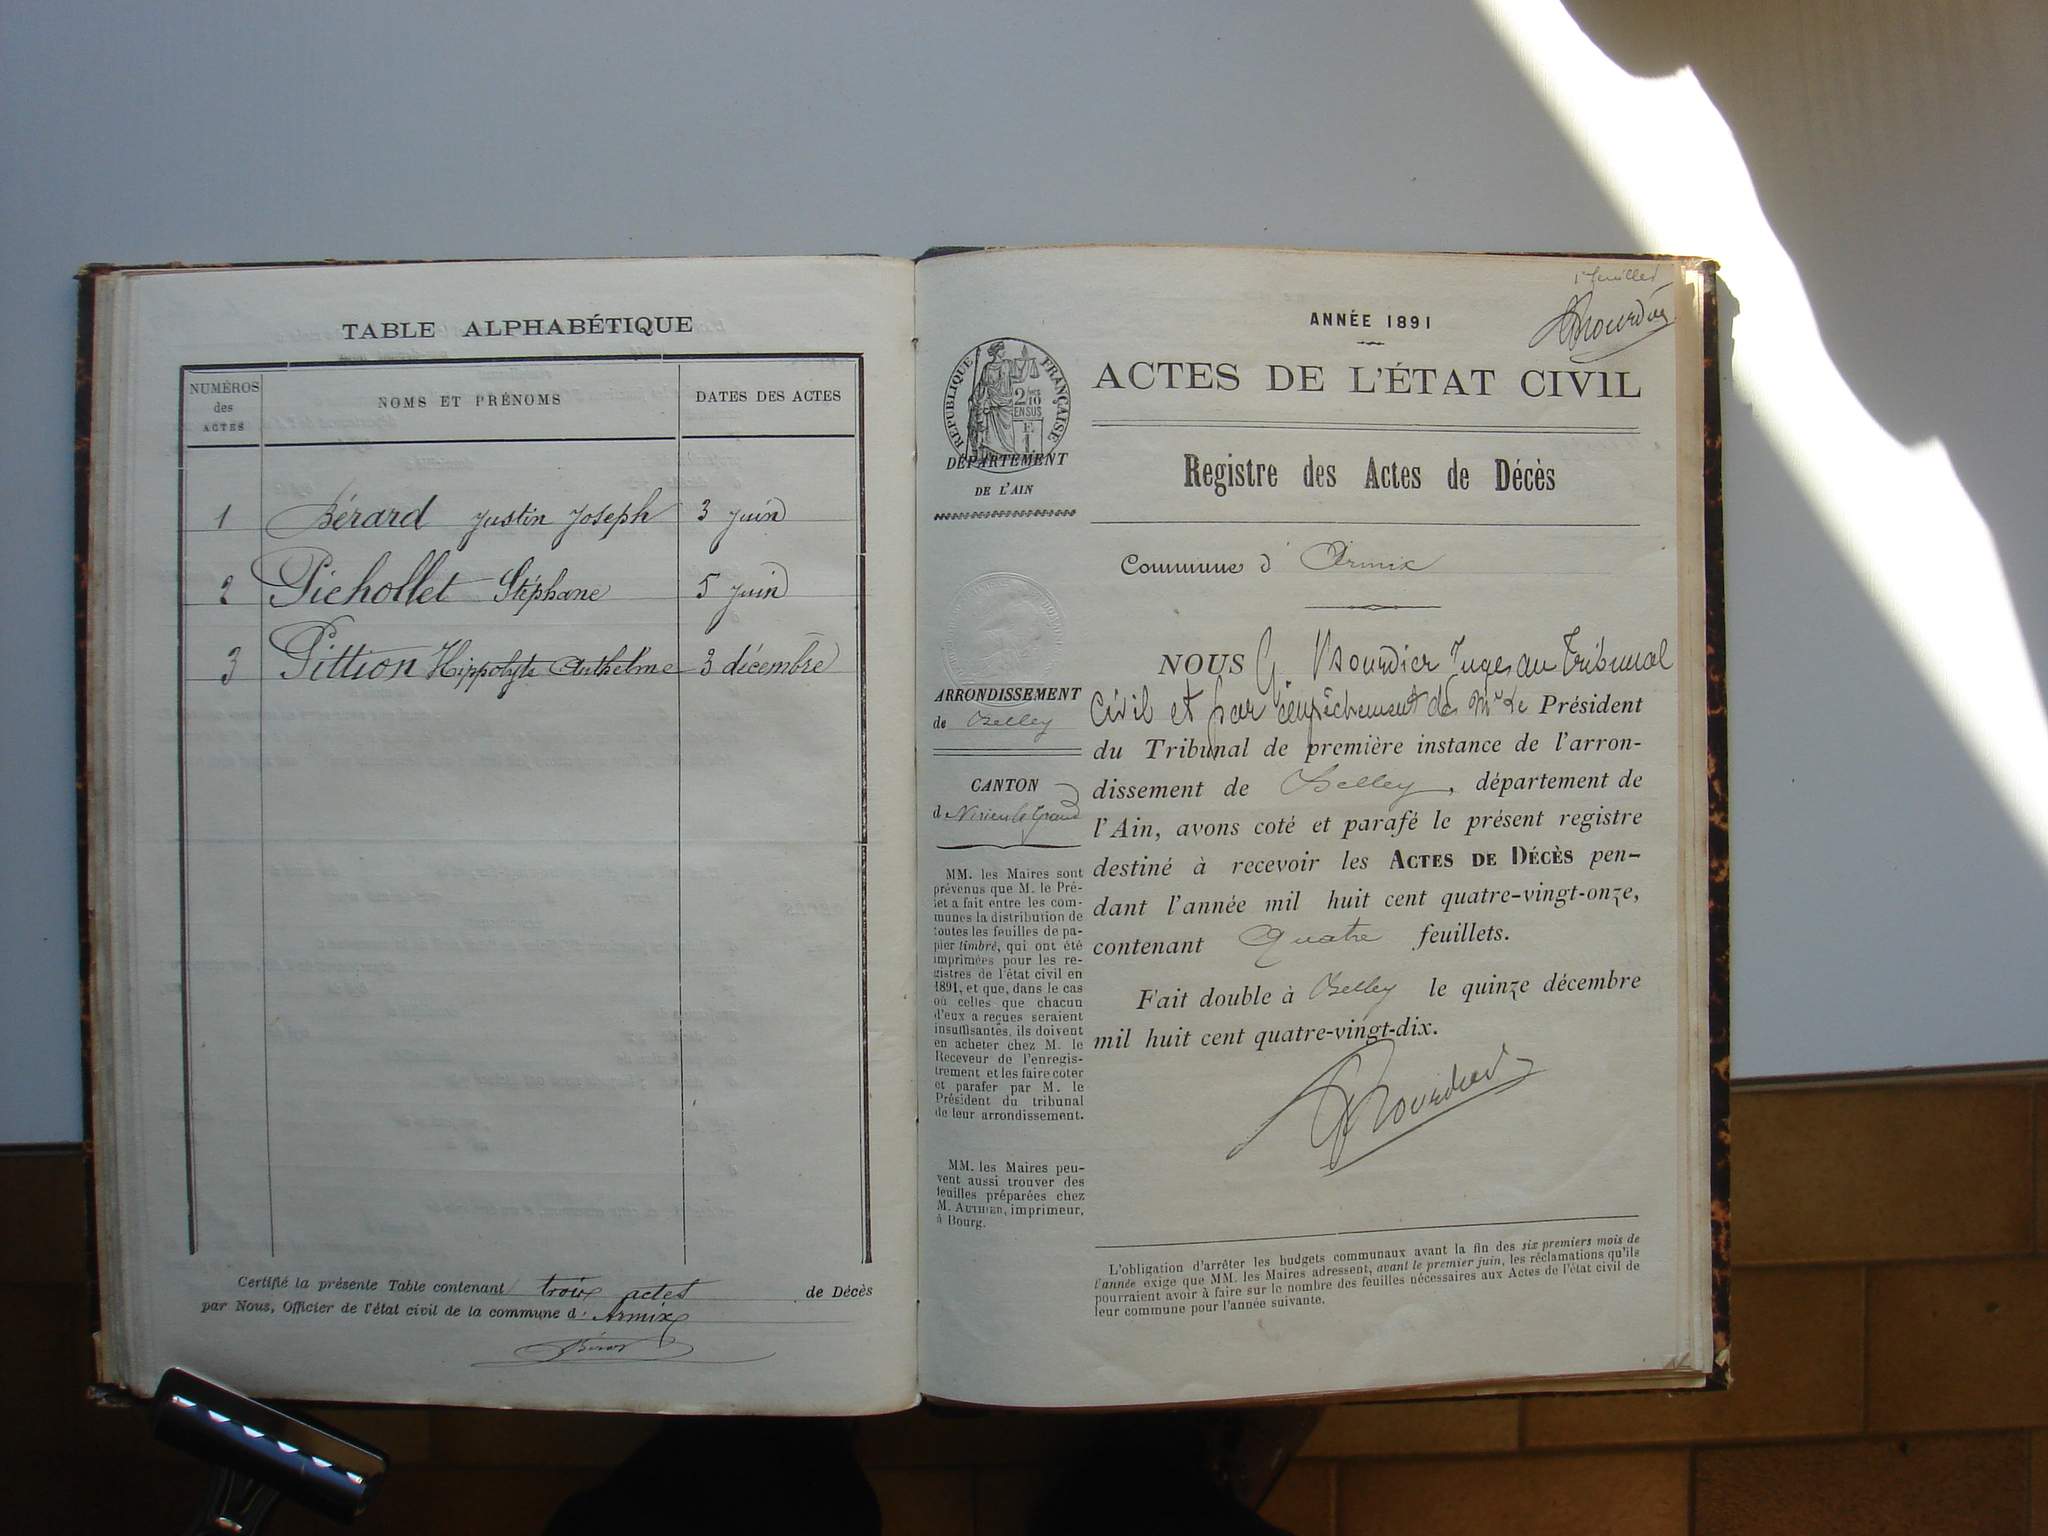 TABLE ALPHABÉTIQUE
NUMÉROS
des
ACTES
NOMS ET PRÉNOMS
DATES DES ACTES
1 Bérard Justin Joseph 3 juin
2 Pichollet Stéphane 5 juin
3 Pittion Hippolyte Anthelme 3 décembre
Certifié la présente Table contenant trois actes de Décès
par Nous, Officier de l'état civil de la commune d' Armix
1r feuillet
ANNÉE 1891
ACTES DE L'ÉTAT CIVIL
RÉPUBLIQUE FRANÇAISE
2/10
EN SUS
DÉPARTEMENT
DE L'AIN
Registre des Actes de Décès
Commune d' Armix
NOUS G. Bourdier Juge au Tribunal
Civil et par empêchement de Mr le Président
du Tribunal de première instance de l'arron-
dissement de Belley, département de
l'Ain, avons coté et parafé le présent registre
destiné à recevoir les ACTES DE DÉCÈS pen-
dant l'année mil huit cent quatre-vingt-onze,
contenant Quatre feuillets.
Fait double à Belley le quinze décembre
mil huit cent quatre-vingt-dix.
ARRONDISSEMENT
de Belley
CANTON
de Virieu le Grand
MM. les Maires sont
prévenus que M. le Pré-
fet a fait entre les com-
munes la distribution de
toutes les feuilles de pa-
pier timbré, qui ont été
imprimées pour les re-
gistres de l'état civil en
1891, et que, dans le cas
où celles que chacun
d'eux a reçues seraient
insuffisantes, ils doivent
en acheter chez M. le
Receveur de l'enregis-
trement et les faire coter
et parafer par M. le
Président du tribunal
de leur arrondissement.
MM. les Maires peu-
vent aussi trouver des
feuilles préparées chez
M. AUTHIER, imprimeur,
à Bourg.
L'obligation d'arrêter les budgets communaux avant la fin des six premiers mois de
l'année exige que MM. les Maires adressent, avant le premier juin, les réclamations qu'ils
pourraient avoir à faire sur le nombre des feuilles nécessaires aux Actes de l'état civil de
leur commune pour l'année suivante.